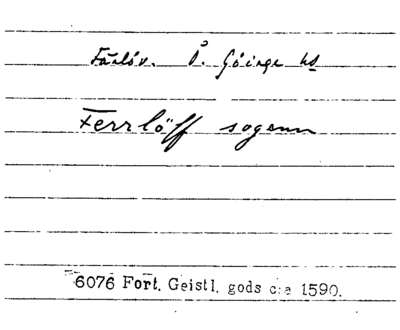 Färlöv. Ö. Göinge hd
Ferrlöff sogenn
6076 Fort. Geistl. gods c:a 1590.